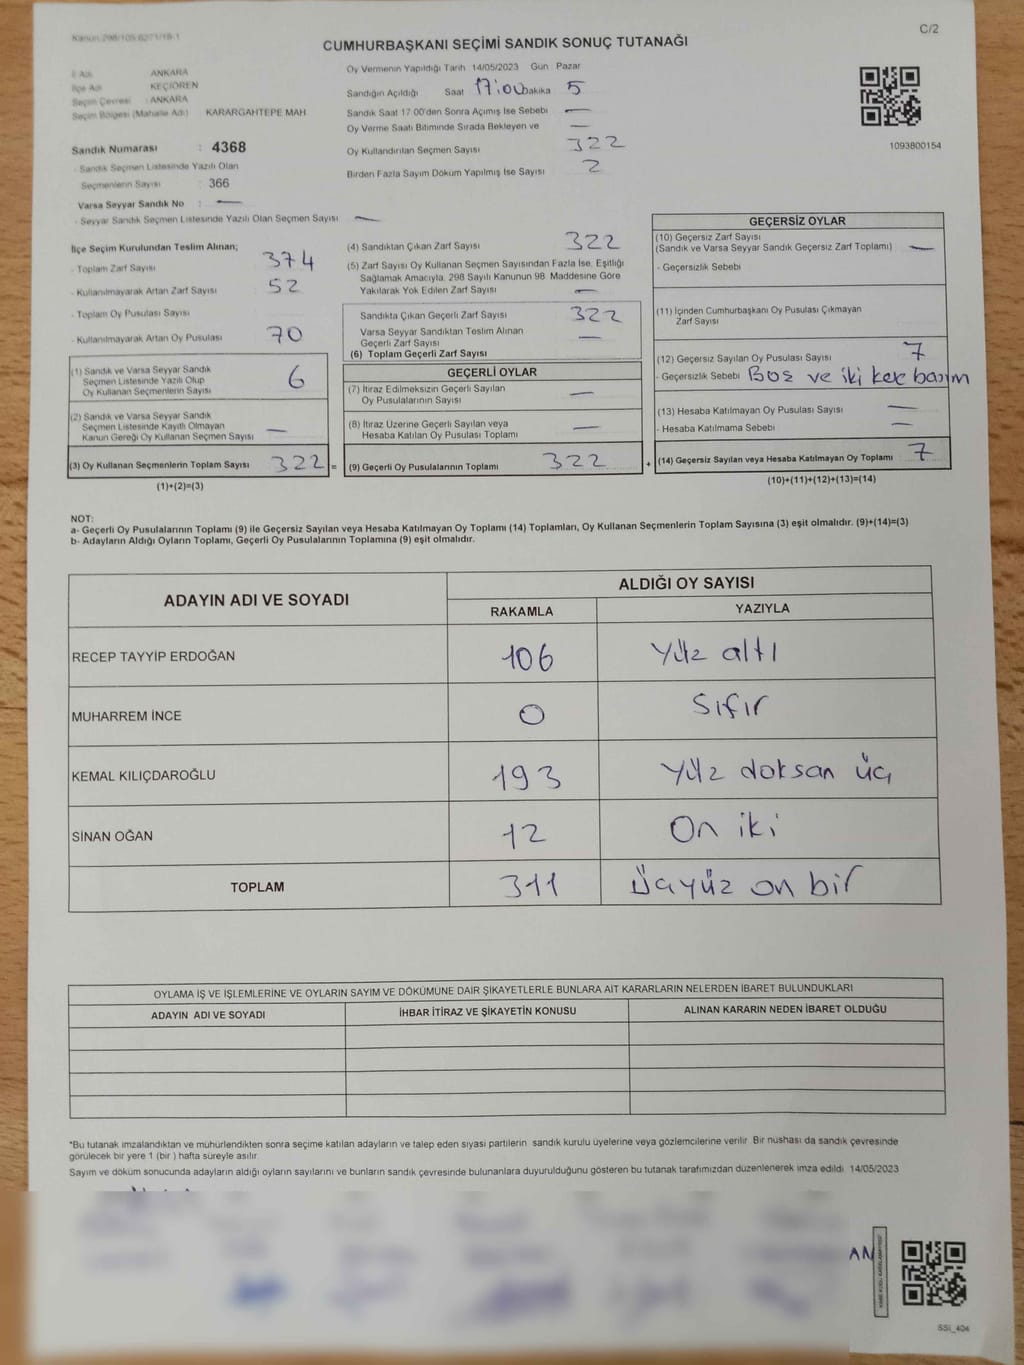 Kanun:298/105 6271/18-1
C/2
CUMHURBAŞKANI SEÇİMİ SANDIK SONUÇ TUTANAĞI
İl Adı ANKARA
İlçe Adı KEÇİÖREN
Seçim Çevresi : ANKARA
Seçim Bölgesi (Mahalle Adı) KARARGAHTEPE MAH
Sandık Numarası : 4368
- Sandık Seçmen Listesinde Yazılı Olan
Seçmenlerin Sayısı : 366
Varsa Seyyar Sandık No : —
- Seyyar Sandık Seçmen Listesinde Yazılı Olan Seçmen Sayısı —
Oy Vermenin Yapıldığı Tarih 14/05/2023 Gün Pazar
Sandığın Açıldığı Saat 17:00 Dakika 5
Sandık Saat 17 00'den Sonra Açımış İse Sebebi —
Oy Verme Saati Bitiminde Sırada Bekleyen ve —
Oy Kullandırılan Seçmen Sayısı 322
Birden Fazla Sayım Döküm Yapılmış İse Sayısı 2
1093800154
İlçe Seçim Kurulundan Teslim Alınan;
- Toplam Zarf Sayısı 374
- Kullanılmayarak Artan Zarf Sayısı 52
- Toplam Oy Pusulası Sayısı
- Kullanılmayarak Artan Oy Pusulası 70
(1) Sandık ve Varsa Seyyar Sandık
Seçmen Listesinde Yazılı Olup
Oy Kullanan Seçmenlerin Sayısı 6
(2) Sandık ve Varsa Seyyar Sandık
Seçmen Listesinde Kayıtlı Olmayan
Kanun Gereği Oy Kullanan Seçmen Sayısı —
(3) Oy Kullanan Seçmenlerin Toplam Sayısı 322 =
(1)+(2)=(3)
(4) Sandıktan Çıkan Zarf Sayısı 322
(5) Zarf Sayısı Oy Kullanan Seçmen Sayısından Fazla İse, Eşitliği
Sağlamak Amacıyla, 298 Sayılı Kanunun 98 Maddesine Göre
Yakılarak Yok Edilen Zarf Sayısı —
Sandıkta Çıkan Geçerli Zarf Sayısı 322
Varsa Seyyar Sandıktan Teslim Alınan
Geçerli Zarf Sayısı —
(6) Toplam Geçerli Zarf Sayısı
GEÇERLİ OYLAR
(7) İtiraz Edilmeksizin Geçerli Sayılan
Oy Pusulalarının Sayısı —
(8) İtiraz Üzerine Geçerli Sayılan veya
Hesaba Katılan Oy Pusulası Toplamı —
(9) Geçerli Oy Pusulalarının Toplamı 322 +
GEÇERSİZ OYLAR
(10) Geçersiz Zarf Sayısı
(Sandık ve Varsa Seyyar Sandık Geçersiz Zarf Toplamı) —
- Geçersizlik Sebebi
(11) İçinden Cumhurbaşkanı Oy Pusulası Çıkmayan
Zarf Sayısı
(12) Geçersiz Sayılan Oy Pusulası Sayısı 7
- Geçersizlik Sebebi Boş ve iki kere basım
(13) Hesaba Katılmayan Oy Pusulası Sayısı —
- Hesaba Katılmama Sebebi —
(14) Geçersiz Sayılan veya Hesaba Katılmayan Oy Toplamı 7
(10)+(11)+(12)+(13)=(14)
NOT:
a- Geçerli Oy Pusulalarının Toplamı (9) ile Geçersiz Sayılan veya Hesaba Katılmayan Oy Toplamı (14) Toplamları, Oy Kullanan Seçmenlerin Toplam Sayısına (3) eşit olmalıdır. (9)+(14)=(3)
b- Adayların Aldığı Oyların Toplamı, Geçerli Oy Pusulalarının Toplamına (9) eşit olmalıdır.
ADAYIN ADI VE SOYADI
ALDIĞI OY SAYISI
RAKAMLA YAZIYLA
RECEP TAYYİP ERDOĞAN 106 Yüz altı
MUHARREM İNCE 0 Sıfır
KEMAL KILIÇDAROĞLU 193 Yüz doksan üç
SİNAN OĞAN 12 On iki
TOPLAM 311 Üçyüz on bir
OYLAMA İŞ VE İŞLEMLERİNE VE OYLARIN SAYIM VE DÖKÜMÜNE DAİR ŞİKAYETLERLE BUNLARA AİT KARARLARIN NELERDEN İBARET BULUNDUKLARI
ADAYIN ADI VE SOYADI İHBAR İTİRAZ VE ŞİKAYETİN KONUSU ALINAN KARARIN NEDEN İBARET OLDUĞU
*Bu tutanak imzalandıktan ve mühürlendikten sonra seçime katılan adayların ve talep eden siyasi partilerin sandık kurulu üyelerine veya gözlemcilerine verilir. Bir nüshası da sandık çevresinde
görülecek bir yere 1 (bir ) hafta süreyle asılır.
Sayım ve döküm sonucunda adayların aldığı oyların sayılarını ve bunların sandık çevresinde bulunanlara duyurulduğunu gösteren bu tutanak tarafımızdan düzenlenerek imza edildi. 14/05/2023
AN
SSİ_404